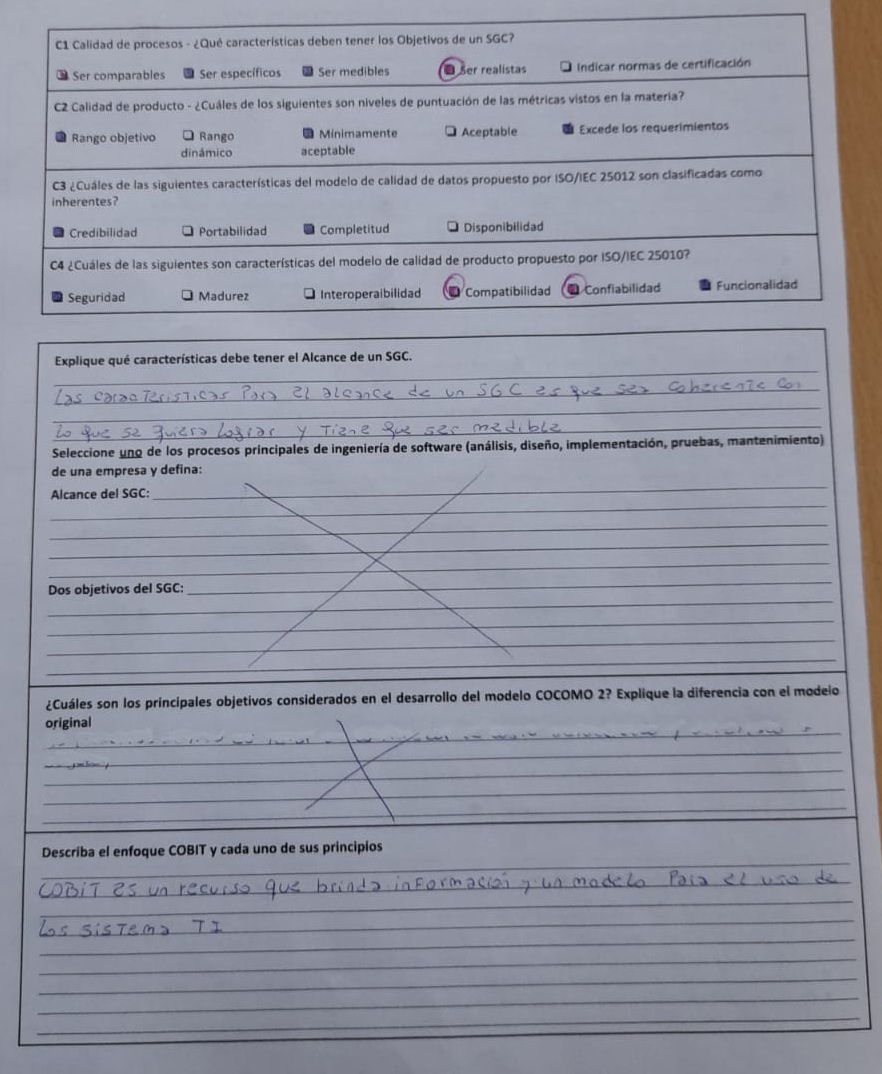 C1 Calidad de procesos - ¿Qué características deben tener los Objetivos de un SGC?
Ser comparables Ser específicos Ser medibles Ser realistas Indicar normas de certificación
C2 Calidad de producto - ¿Cuáles de los siguientes son niveles de puntuación de las métricas vistos en la materia?
Rango objetivo Rango dinámico Mínimamente aceptable Aceptable Excede los requerimientos
C3 ¿Cuáles de las siguientes características del modelo de calidad de datos propuesto por ISO/IEC 25012 son clasificadas como
inherentes?
Credibilidad Portabilidad Completitud Disponibilidad
C4 ¿Cuáles de las siguientes son características del modelo de calidad de producto propuesto por ISO/IEC 25010?
Seguridad Madurez Interoperaibilidad Compatibilidad Confiabilidad Funcionalidad
Explique qué características debe tener el Alcance de un SGC.
Las caracteristicas Para el alcance de un SGC es que sea coherente con
lo que se quiera lograr y Tiene que ser medible
Seleccione uno de los procesos principales de ingeniería de software (análisis, diseño, implementación, pruebas, mantenimiento)
de una empresa y defina:
Alcance del SGC:
Dos objetivos del SGC:
¿Cuáles son los principales objetivos considerados en el desarrollo del modelo COCOMO 2? Explique la diferencia con el modelo
original
Describa el enfoque COBIT y cada uno de sus principios
COBIT es un recurso que brinda información y un modelo Para el uso de
los sistema TI